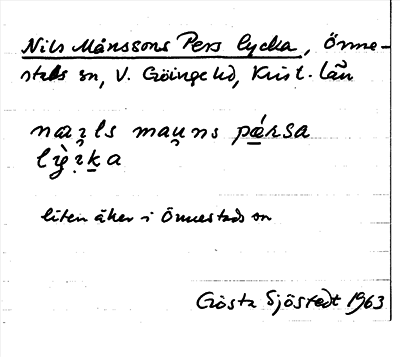 Nils Månssons Pers lycka, Önne-
stads sn, V. Göinge hd, Krist. län
næi̯ls mau̯ns pǽrsa
lỳi̯k̠a
liten åker i Önnestads sn
Gösta Sjöstedt 1963